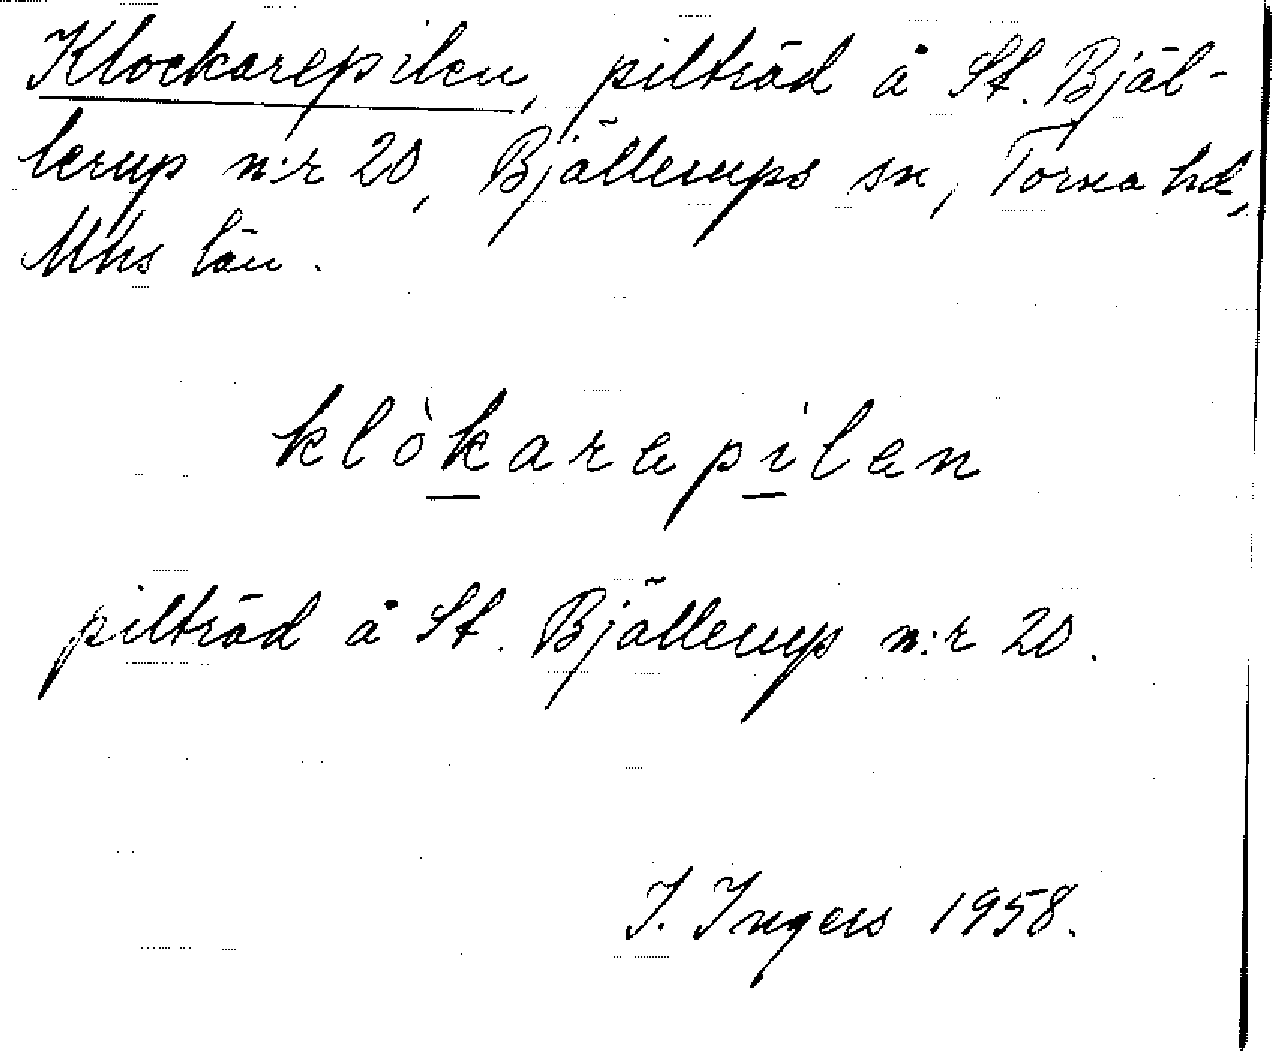 Klockarepilen, pilträd å St. Bjäl-
lerup n:r 20, Bjällerups sn, Torna hd,
Mhs län.
klòkarepílen
pilträd å St. Bjällerup n:r 20.
I. Ingers 1958.